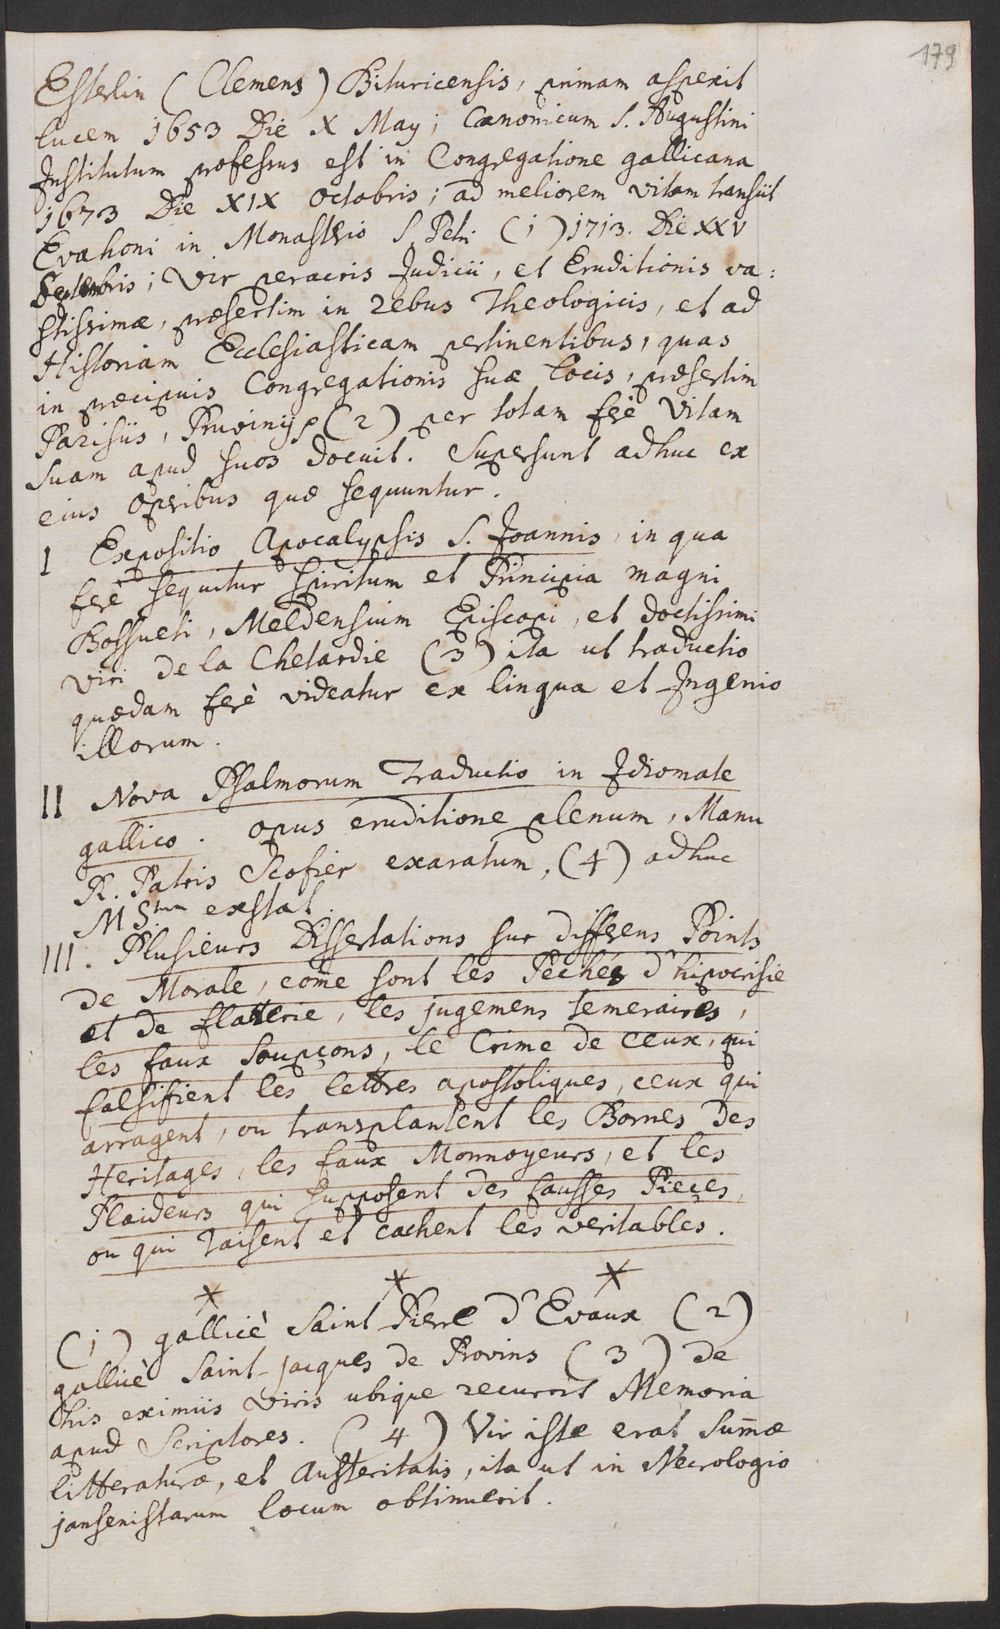 179
Esterlin (Clemens) Bituricensis, primam aspexit
lucem 1653 Die X May; Canonicum S. Augustini
Institutum professus est in Congregatione gallicana
1673 Die XIX Octobris; ad meliorem vitam transiit
Evahoni in Monastrio S Petri (1) 1713. Die XXV
Septembris; Vir peracris Judicii, et Eruditionis va:
stissimæ, præsertim in rebus Theologicis, et ad
Historiam Ecclesiasticam pertinentibus, quas
in præcipuis Congregationis suæ Locis, præsertim
Parisiis, Pruvinijs (2) per totam ferè Vitam
suam apud suos docuit. Supersunt adhuc ex
eius Opribus quæ sequuntur.
I Expositio Apocalypsis S. Joannis, in qua
ferè sequitur Spiritum et Principia magni
Bossueti, Meldensium Episcopi, et doctissimi
viri de la Chetardie (3) ita ut traductio
quædam ferè videatur ex lingua et Ingenio
illorum.
II Nova Psalmorum Traductio in Idiomate
gallico. Opus eruditione plenum, Manu
R. Patris Scofier exaratum, (4) adhuc
M S.tum exstat.
III. Plusieurs Dissertations sur differens Points
de Morale, come sont les Pechés d'hipocrisie
et de flatterie, les jugemens temeraires,
les faux Soupçons, le Crime de ceux, qui
falsifient les lettres apostoliques, ceux qui
arragent, ou transplantent les Bornes des
Heritages, les faux Monnoyeurs, et les
Plaideurs qui supposent des fausses Pieçes,
ou qui Taisent et cachent les veritables.
* * *
(1) gallicè Saint Pierre d'Evaux (2)
gallicè Saint-jacques de Provins (3) De
his eximiis viris ubique recurrit Memoria
apud Scriptores. (4) Vir iste erat Sum̄æ
litteraturæ, et Austeritatis, ita ut in Necrologio
jansenistarum locum obtinuerit.